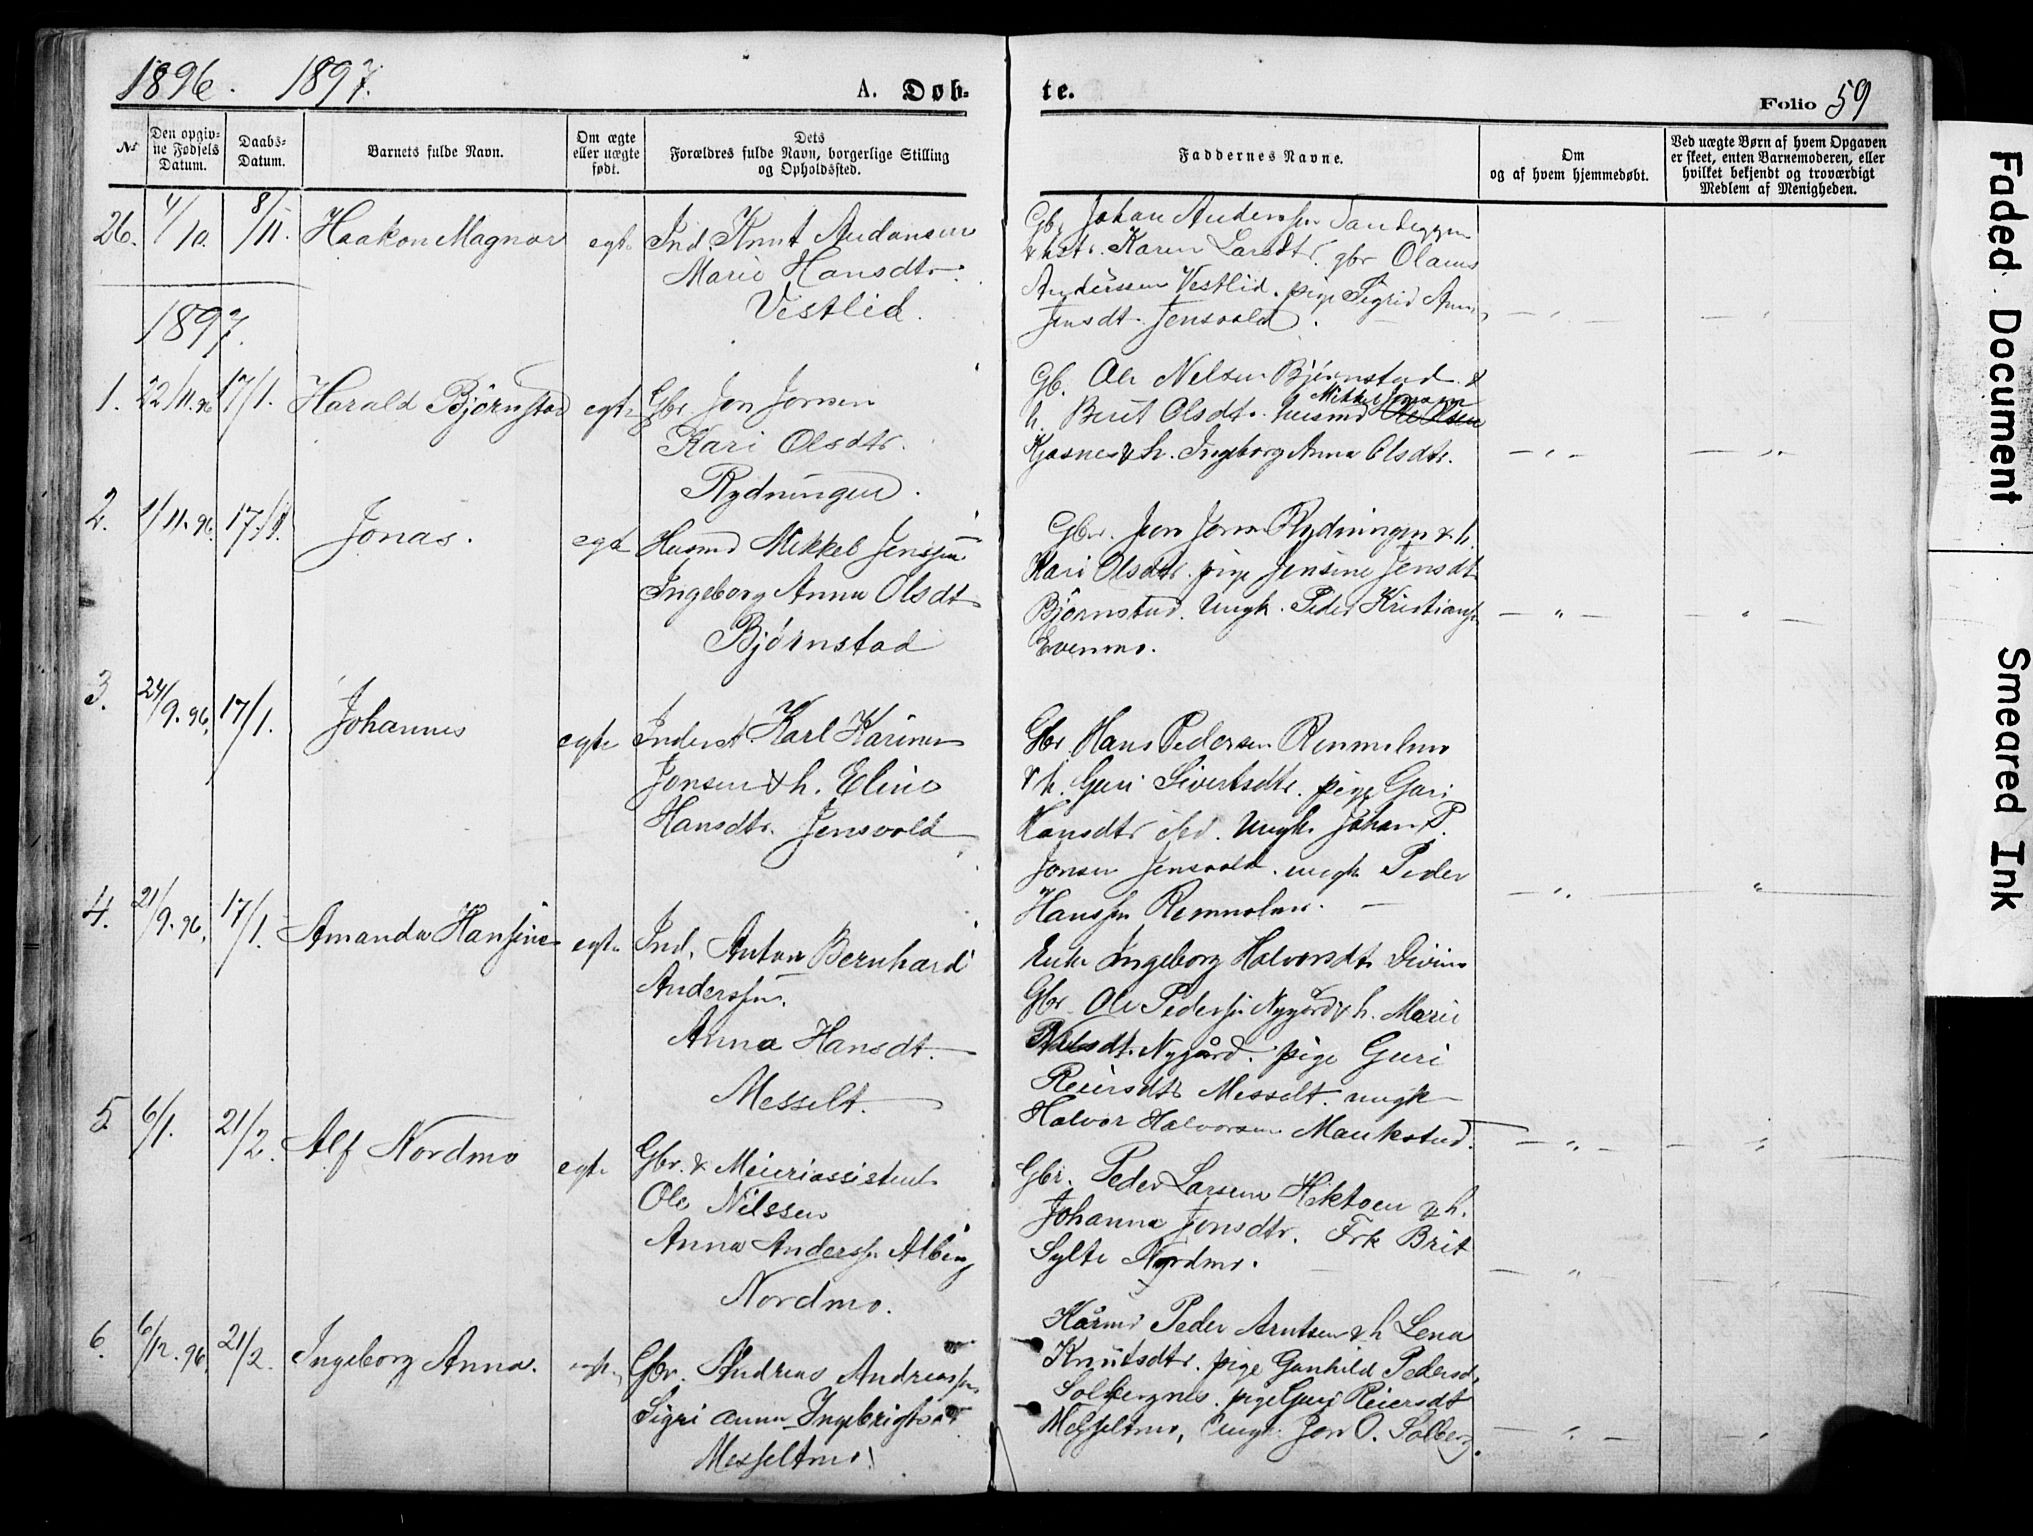 1896. 1897. A. Døb- te. Folio 59
No
Den opgiv-
ne Fødsels
Datum.
Daabs-
Datum.
Barnets fulde Navn.
Om ægte
eller uægte
født.
Dets
Forældres fulde Navn, borgerlige Stilling
og Opholdssted.
Faddernes Navne.
Om
og af hvem hjemmedøbt.
Ved uægte Børn af hvem Opgaven
er skeet, enten Barnemoderen, eller
hvilket bekjendt og troværdigt
Medlem af Menigheden.
26. 4/10. 8/11. Haakon Magnar egte Ind. Knut Audansen
Marie Hansdtr.
Vestlid.
Gbr Johan Anderssen
& hstr. Karen Larsdtr. gbr Olaus
Anderssen Vestlid. pige Sigrid Anna
Jensdt. Jensvold.
1897.
1. 22/11.96 17/1. Harald Bjørnstad egte Gbr Jon Jonsen
Kari Olsdtr.
Rydningen.
Gb. Ole Nelsen Bjørnstad &
Mikkel Jonssen
h. Berit Olsdtr. husmd Ole Olsen
& h. Ingeborg Anna Olsdtr.
2. 1/11.96. 17/1. Jonas. egte Husmd Mikkel Jenssen
Ingeborg Anna Olsdt
Bjørnstad
Gbr. Jon Jonsen Rydningen & h.
Kari Olsdtr. pige Jensine Jensdt
Bjørnstad. Ungk. Peder Kristianss.
Evenmo.
3. 24/9.96. 17/1. Johannes egte Inderst Karl Karinus
Jonsen & h. Eline
Hansdtr. Jensvold
Gbr. Hans Pedersen
& h. Guri Sivertsdtr. pige Guri
Hansdtr ibd. Ungk. Johan P.
Jonsen Jensvold. ungk Peder
Hanssen
4. 21/9.96. 17/1. Amanda Hansine egte Ind. Anton Bernhard
Anderssen.
Anna Hansdt.
Messelt.
Enke Ingeborg Halvorsdt
Gbr. Ole Pederssen Nygård & h. Marie
Nilsdt. Nygård. pige Guri
Reiersdtr Messelt. ungk
Halvor Halvorsen Maukstad.
5. 6/1. 21/2. Alf Nordmo egte Gbr. & Meieriassistent
Ole Nilssen
Anna Anderss. Albing
Nordmo.
Gbr. Peder Larsen Hektoen & h.
Johanna Jonsdtr. Frk Brit
Sylte Nordmo.
6. 6/12.96. 21/2. Ingeborg Anna. egte Gbr. Andreas Andreassen
Sigri Anna Ingebrigtsdt.
Messeltmo.
Peder Arntsen & h Lena
Knutsdtr. pige Gunhild Pedersd.
Solbergnes. pige Guri Reiersdt
Messeltmo, Ungk. Jon O. Solberg.
Faded Document
Smeared Ink